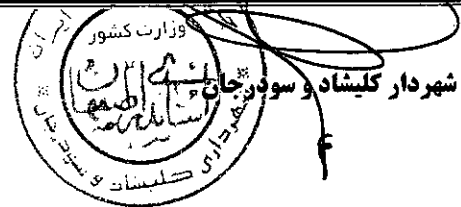 وزارت کشور
ایران
استانداری اصفهان
شهرداری کلیشاد و سودرجان
شهردار کلیشاد و سودرجان